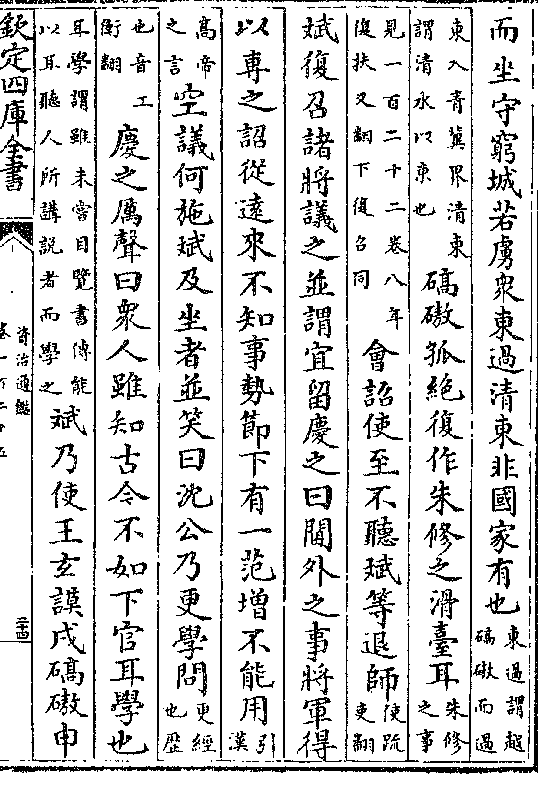 而坐守窮城若虜衆東過清東非國家有也東過謂越碻磝而過
東入青冀界清東謂清水以東也碻磝孤絶復作朱修之滑臺耳朱修之事
見一百二十二卷八年復扶又翻下復召同會詔使至不聽斌等退師使疏吏翻
斌復召諸將議之並謂宜留慶之曰閫外之事將軍得
以專之詔從遠來不知事勢節下有一范增不能用引漢
髙帝之言空議何施斌及坐者並笑曰沈公乃更學問更經也歴
也音工衡翻慶之厲聲曰衆人雖知古今不如下官耳學也
耳學謂雖未嘗目覽書傳能以耳聽人所講説者而學之斌乃使王玄謨戍碻磝申
欽定四庫全書
資治通鑑
卷一百二十五
二十四